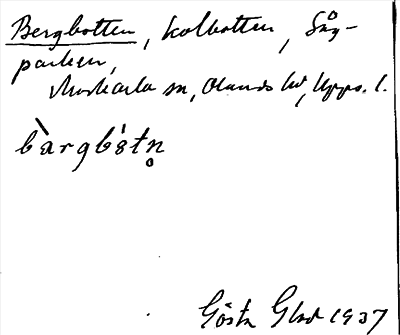 Bergbotten, Kolbotten, Såg-
parken,
Morkarla sn, Olands hd, Upps. l.
bàrgbåtn̥
Gösta Glad 1937